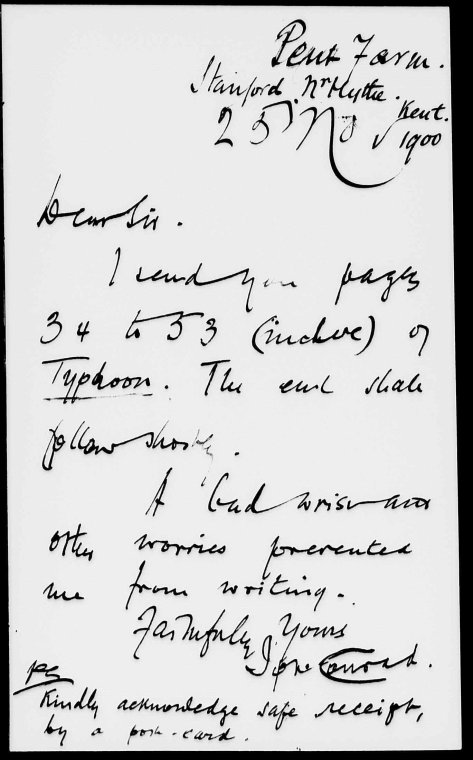 Pent Farm.
Stanford. Nr Hythe.
Kent.
25th Nov 1900
Dear Sir.
I send you pages
34 to 53 (inclive) of
Typhoon. The end shall
follow shortly.
A bad wrist and
other worries prevented
me from writing.
Faithfully Yours
Jph Conrad.
PS
Kindly acknowledge safe receipt,
by a post-card.